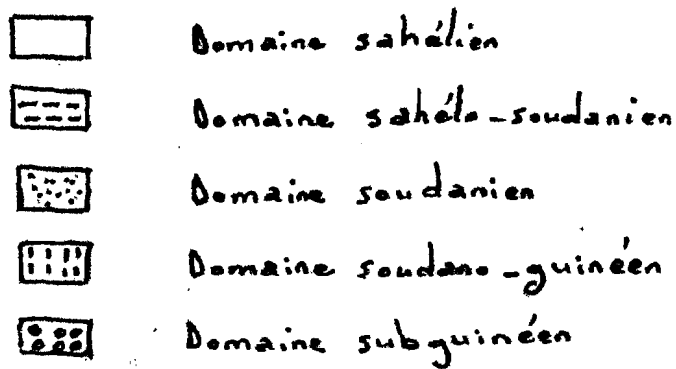 Domaine sahélien
Domaine sahélo-soudanien
Domaine soudanien
Domaine soudano-guinéen
Domaine subguinéen